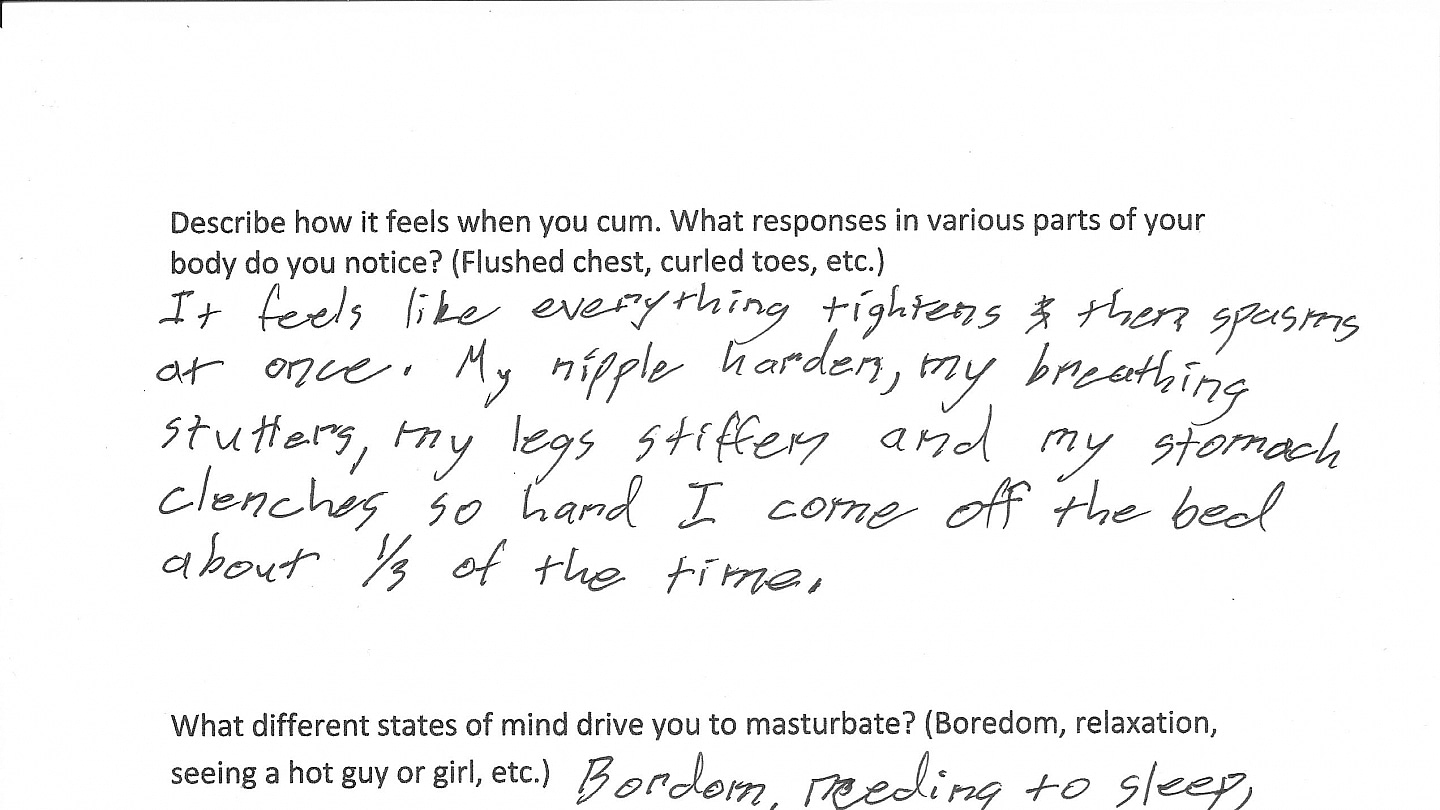 Describe how it feels when you cum. What responses in various parts of your
body do you notice? (Flushed chest, curled toes, etc.)
It feels like everything tightens & then spasms
at once. My nipple harden, my breathing
stutters, my legs stiffen and my stomach
clenches so hard I come off the bed
about 1/3 of the time.
What different states of mind drive you to masturbate? (Boredom, relaxation,
seeing a hot guy or girl, etc.) Bordom, needing to sleep,